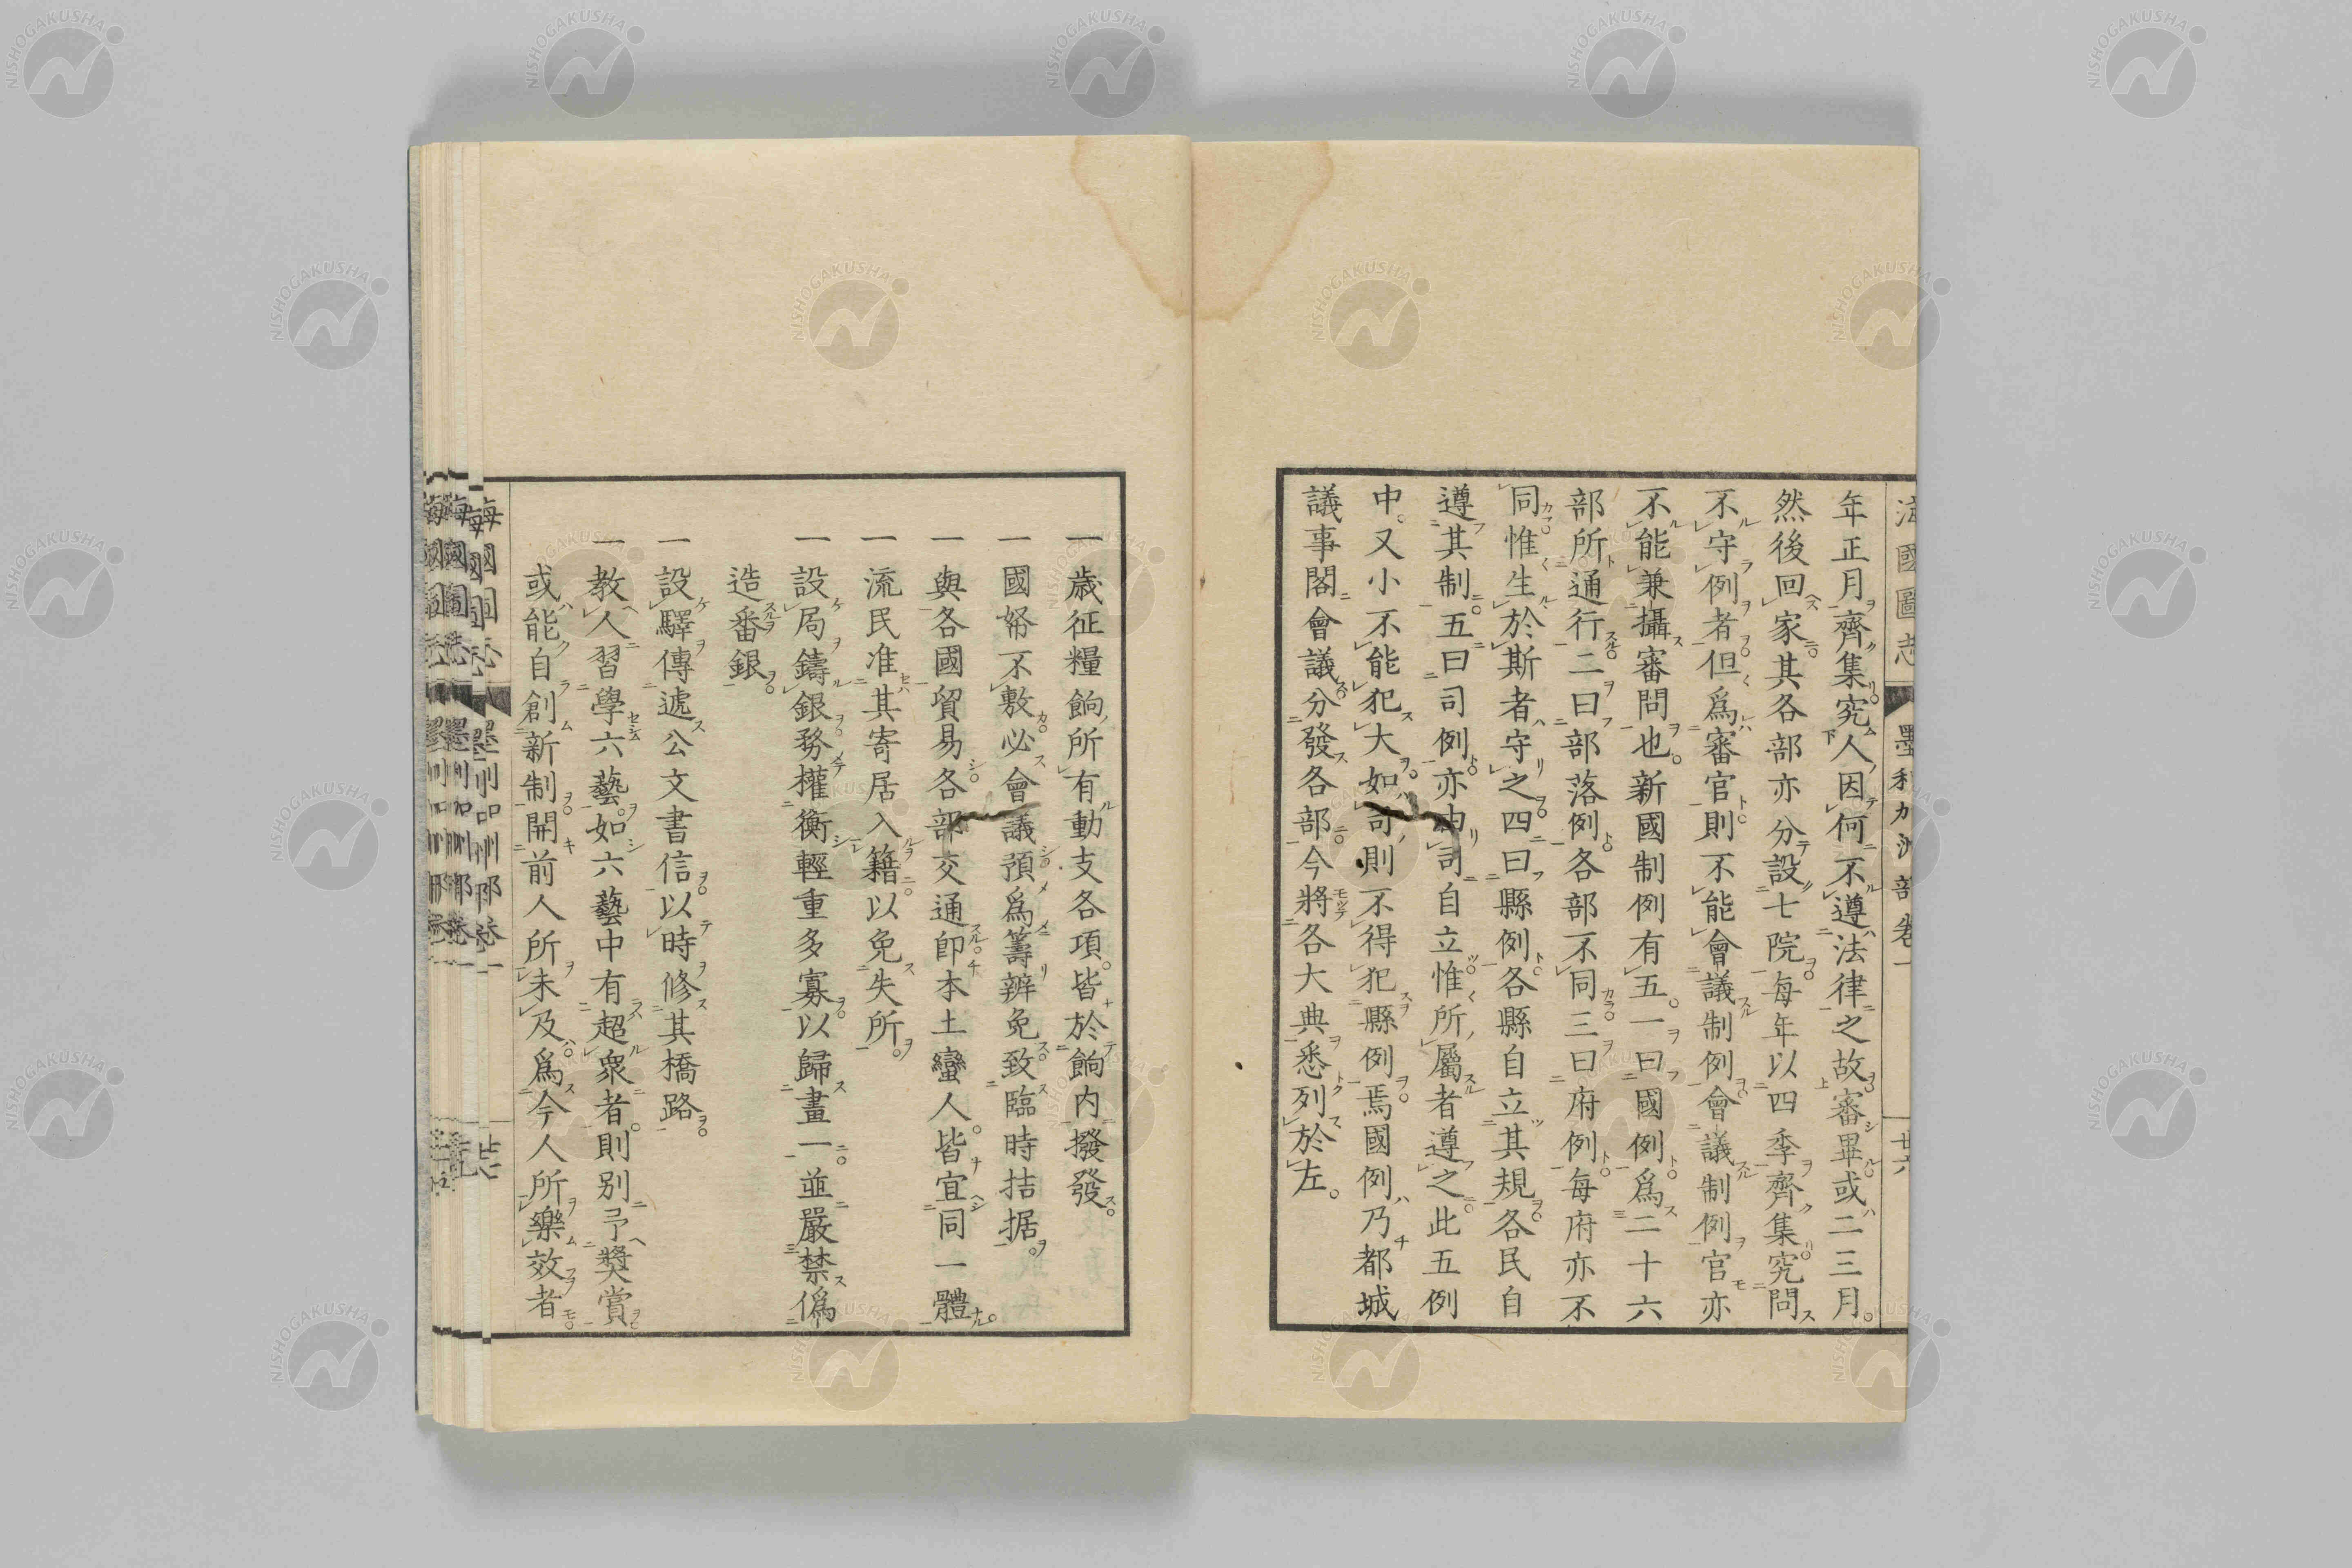 海國圖志 墨利加洲部卷一 廿六
年正月齊集究人因何不遵法律之故審畢或二三月。
然後回家其各部亦分設七院每年以四季齊集究問
不守例者但爲審官則不能會議制例會議制例官亦
不能兼攝審問也。新國制例有五。一曰國例爲二十六
部所通行二曰部落例各部不同三曰府例每府亦不
同惟生於斯者守之四曰縣例各縣自立其規各民自
遵其制五曰司例亦由司自立惟所屬者遵之此五例
中。又小不能犯大如司則不得犯縣例焉國例乃都城
議事閣會議分發各部今將各大典悉列於左。
一歳征糧餉所有動支各項。皆於餉内撥發。
一國帑不敷必會議預爲籌辨免致臨時拮据。
一與各國貿易各部交通卽本土蠻人。皆宜同一體
一流民准其寄居入籍以免失所。
一設局鑄銀務權衡輕重多寡以歸畫一並嚴禁僞
造番銀
一設驛傳遞公文書信以時修其橋路
一教人習學六藝。如六藝中有超衆者。則別予獎賞
或能自創新制開前人所未及爲今人所樂效者